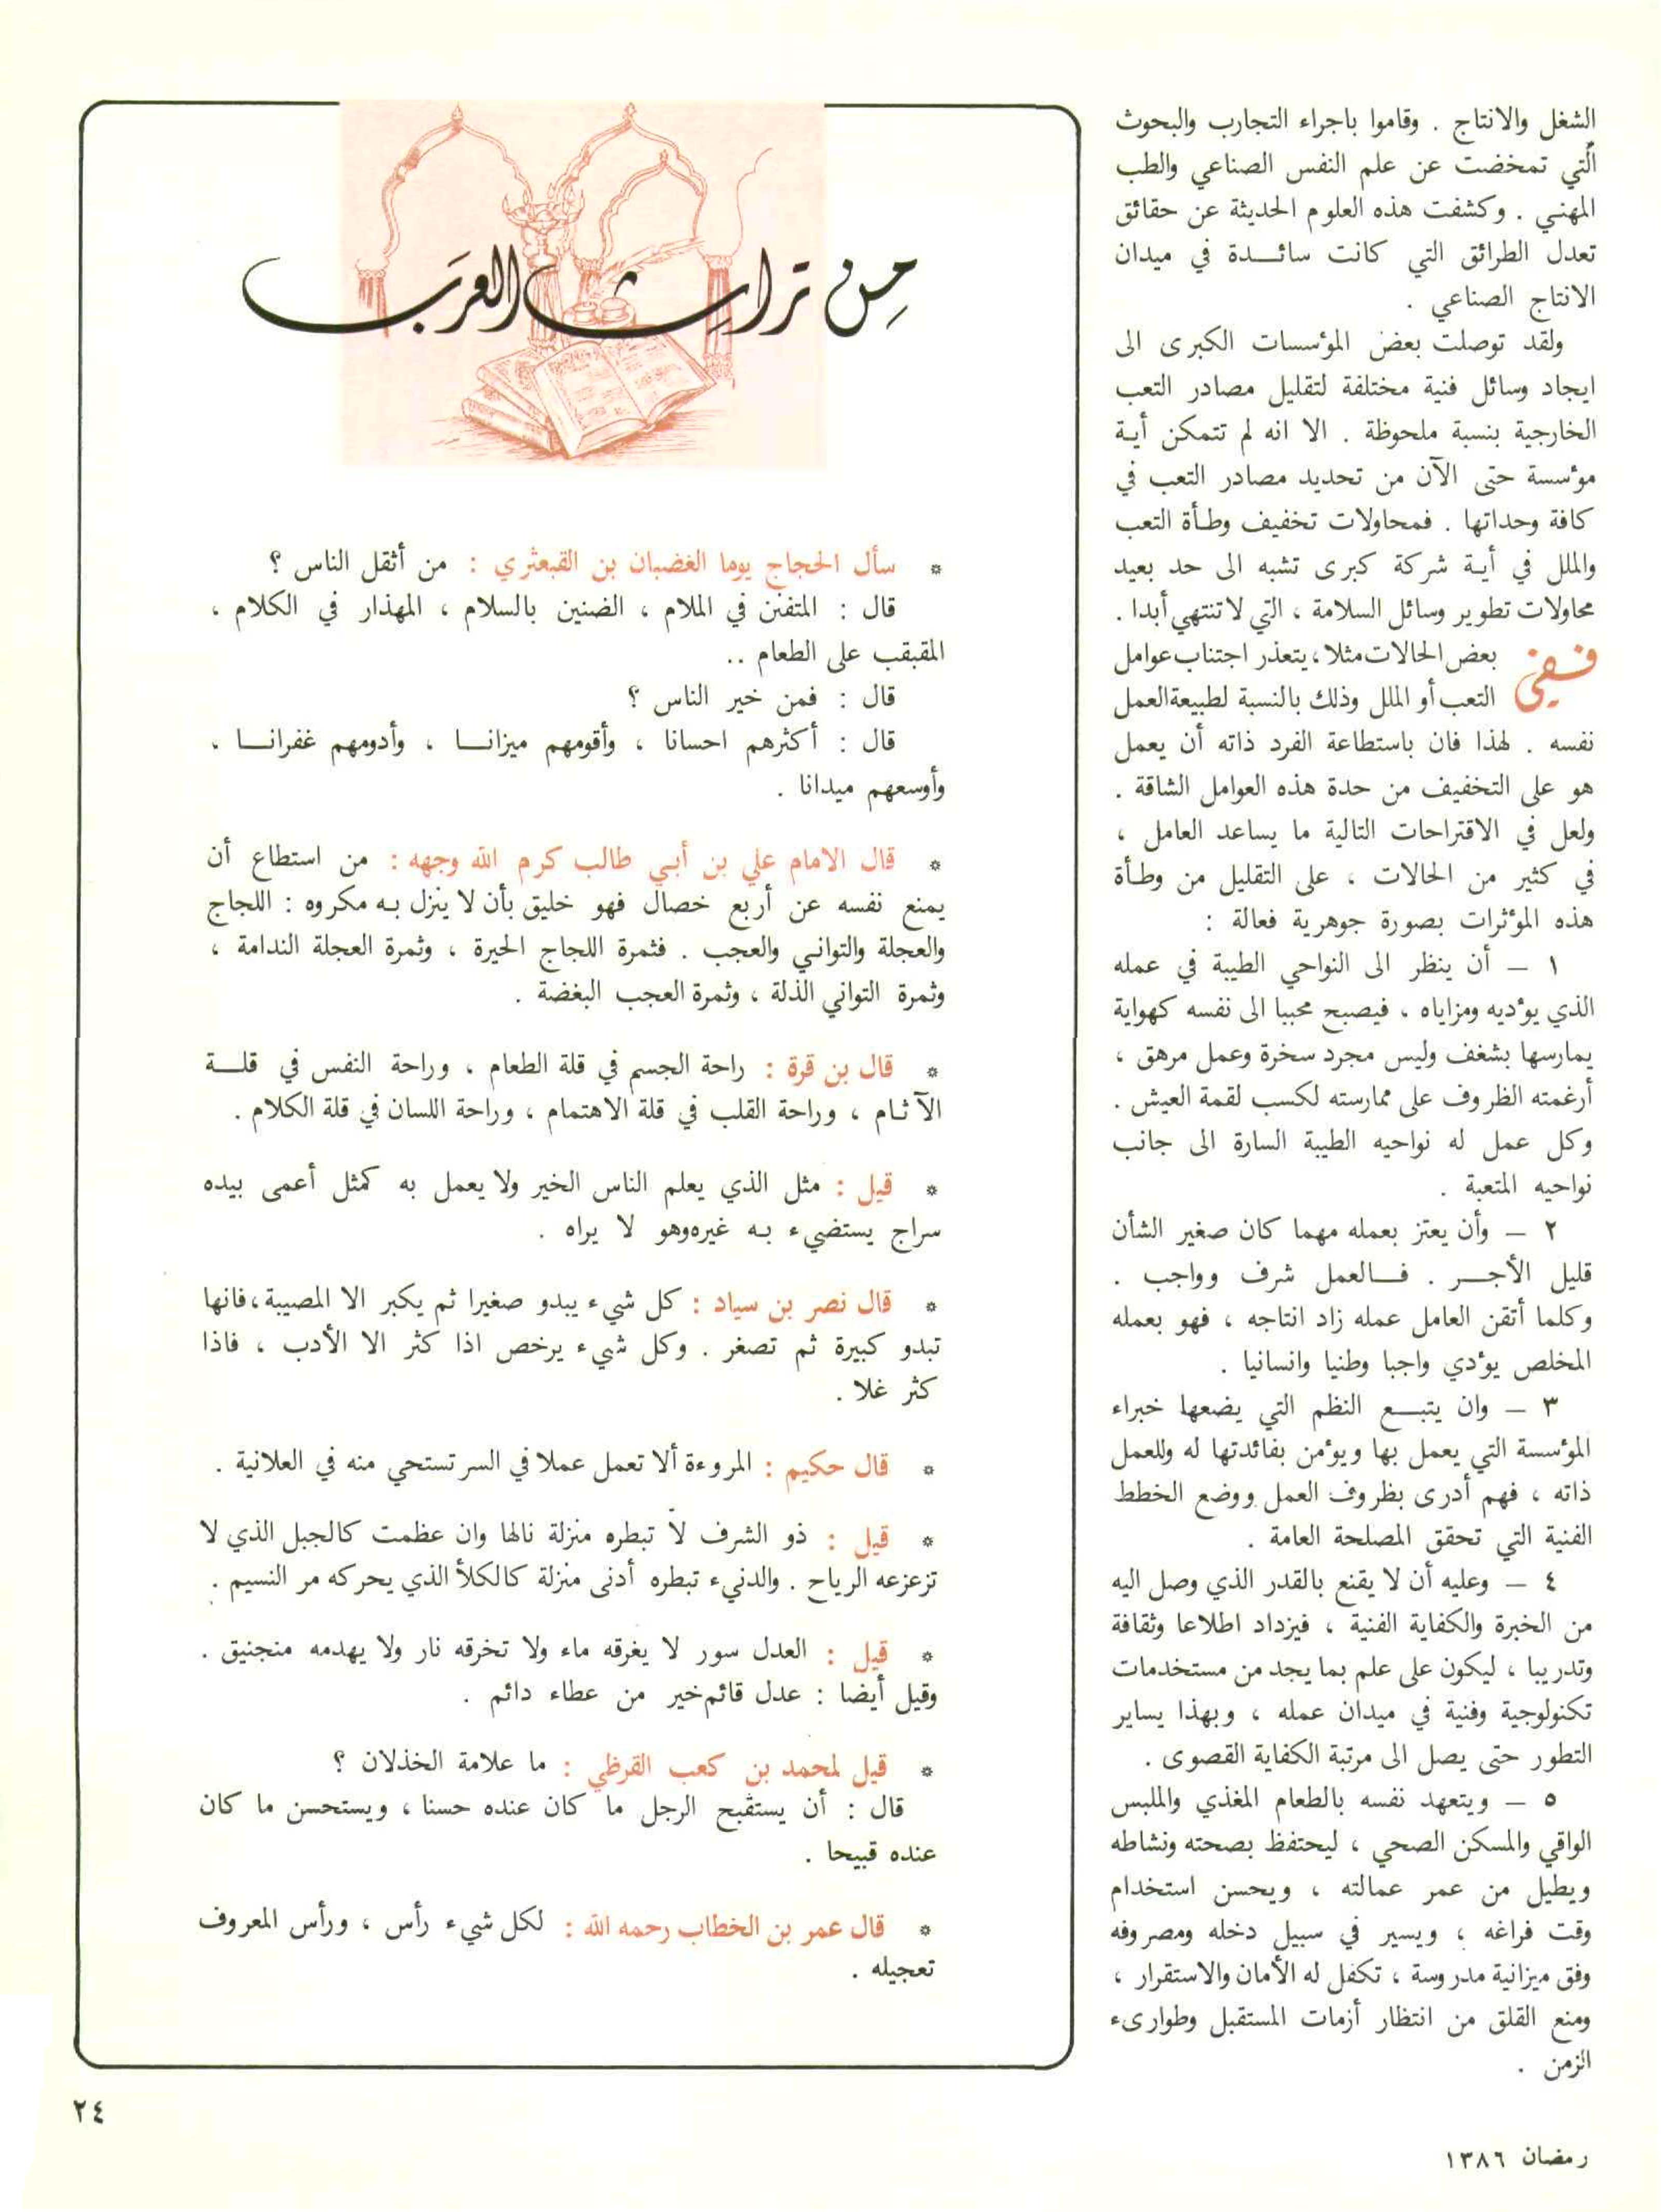 الشغل والانتاج . وقاموا باجراء التجارب والبحوث
الّتي تمخضت عن علم النفس الصناعي والطب
المهني . وكشفت هذه العلوم الحديثة عن حقائق
تعدل الطرائق التي كانت سائدة في ميدان
الانتاج الصناعي .
ولقد توصلت بعض المؤسسات الكبرى الى
ايجاد وسائل فنية مختلفة لتقليل مصادر التعب
الخارجية بنسبة ملحوظة . الا انه لم تتمكن أية
مؤسسة حتى الآن من تحديد مصادر التعب في
كافة وحداتها . فمحاولات تخفيف وطأة التعب
والملل في أية شركة كبرى تشبه الى حد بعيد
محاولات تطوير وسائل السلامة ، التي لا تنتهي أبدا .
ففي بعض الحالات مثلا ، يتعذر اجتناب عوامل
التعب أو الملل وذلك بالنسبة لطبيعة العمل
نفسه . لهذا فان باستطاعة الفرد ذاته أن يعمل
هو على التخفيف من حدة هذه العوامل الشاقة .
ولعل في الاقتراحات التالية ما يساعد العامل ،
في كثير من الحالات ، على التقليل من وطأة
هذه المؤثرات بصورة جوهرية فعالة :
١ – أن ينظر الى النواحي الطيبة في عمله
الذي يؤديه ومزاياه ، فيصبح محببا الى نفسه كهواية
يمارسها بشغف وليس مجرد سخرة وعمل مرهق ،
أرغمته الظروف على ممارسته لكسب لقمة العيش .
وكل عمل له نواحيه الطيبة السارة الى جانب
نواحيه المتعبة .
٢ – وأن يعتز بعمله مهما كان صغير الشأن
قليل الأجر . فالعمل شرف وواجب .
وكلما أتقن العامل عمله زاد انتاجه ، فهو بعمله
المخلص يؤدي واجبا وطنيا وانسانيا .
٣ – وان يتبع النظم التي يضعها خبراء
المؤسسة التي يعمل بها ويؤمن بفائدتها له وللعمل
ذاته ، فهم أدرى بظروف العمل ووضع الخطط
الفنية التي تحقق المصلحة العامة .
٤ – وعليه أن لا يقنع بالقدر الذي وصل اليه
من الخبرة والكفاية الفنية ، فيزداد اطلاعا وثقافة
وتدريبا ، ليكون على علم بما يجد من مستخدمات
تكنولوجية وفنية في ميدان عمله ، وبهذا يساير
التطور حتى يصل الى مرتبة الكفاية القصوى .
٥ – ويتعهد نفسه بالطعام المغذي والملبس
الواقي والمسكن الصحي ، ليحتفظ بصحته ونشاطه
ويطيل من عمر عمالته ، ويحسن استخدام
وقت فراغه ؛ ويسير في سبيل دخله ومصروفه
وفق ميزانية مدروسة ، تكفل له الأمان والاستقرار ،
ومنع القلق من انتظار أزمات المستقبل وطوارىء
الزمن .
مِن تراثِ العرَب
* سأل الحجاج يوما الغضبان بن القبعثري : من أثقل الناس ؟
قال : المتفنن في الملام ، الضنين بالسلام ، المهذار في الكلام ،
المقبقب على الطعام ..
قال : فمن خير الناس ؟
قال : أكثرهم احسانا ، وأقومهم ميزانا ، وأدومهم غفرانا ،
وأوسعهم ميدانا .
* قال الامام علي بن أبي طالب كرم الله وجهه : من استطاع أن
يمنع نفسه عن أربع خصال فهو خليق بأن لا ينزل به مكروه : اللجاج
والعجلة والتواني والعجب . فثمرة اللجاج الحيرة ، وثمرة العجلة الندامة ،
وثمرة التواني الذلة ، وثمرة العجب البغضة .
* قال بن قرة : راحة الجسم في قلة الطعام ، وراحة النفس في قلة
الآثام ، وراحة القلب في قلة الاهتمام ، وراحة اللسان في قلة الكلام .
* قيل : مثل الذي يعلم الناس الخير ولا يعمل به كمثل أعمى بيده
سراج يستضيء به غيره وهو لا يراه .
* قال نصر بن سياد : كل شيء يبدو صغيرا ثم يكبر الا المصيبة ، فانها
تبدو كبيرة ثم تصغر . وكل شيء يرخص اذا كثر الا الأدب ، فاذا
كثر غلا .
* قال حكيم : المروءة ألا تعمل عملا في السر تستحي منه في العلانية .
* قيل : ذو الشرف لا تبطره منزلة نالها وان عظمت كالجبل الذي لا
تزعزعه الرياح . والدنيء تبطره أدنى منزلة كالكلأ الذي يحركه مر النسيم .
* قيل : العدل سور لا يغرقه ماء ولا تخرقه نار ولا يهدمه منجنيق .
وقيل أيضا : عدل قائم خير من عطاء دائم .
* قيل لمحمد بن كعب القرظي : ما علامة الخذلان ؟
قال : أن يستقبح الرجل ما كان عنده حسنا ، ويستحسن ما كان
عنده قبيحا .
* قال عمر بن الخطاب رحمه الله : لكل شيء رأس ، ورأس المعروف
تعجيله .
٢٤
رمضان ١٣٨٦